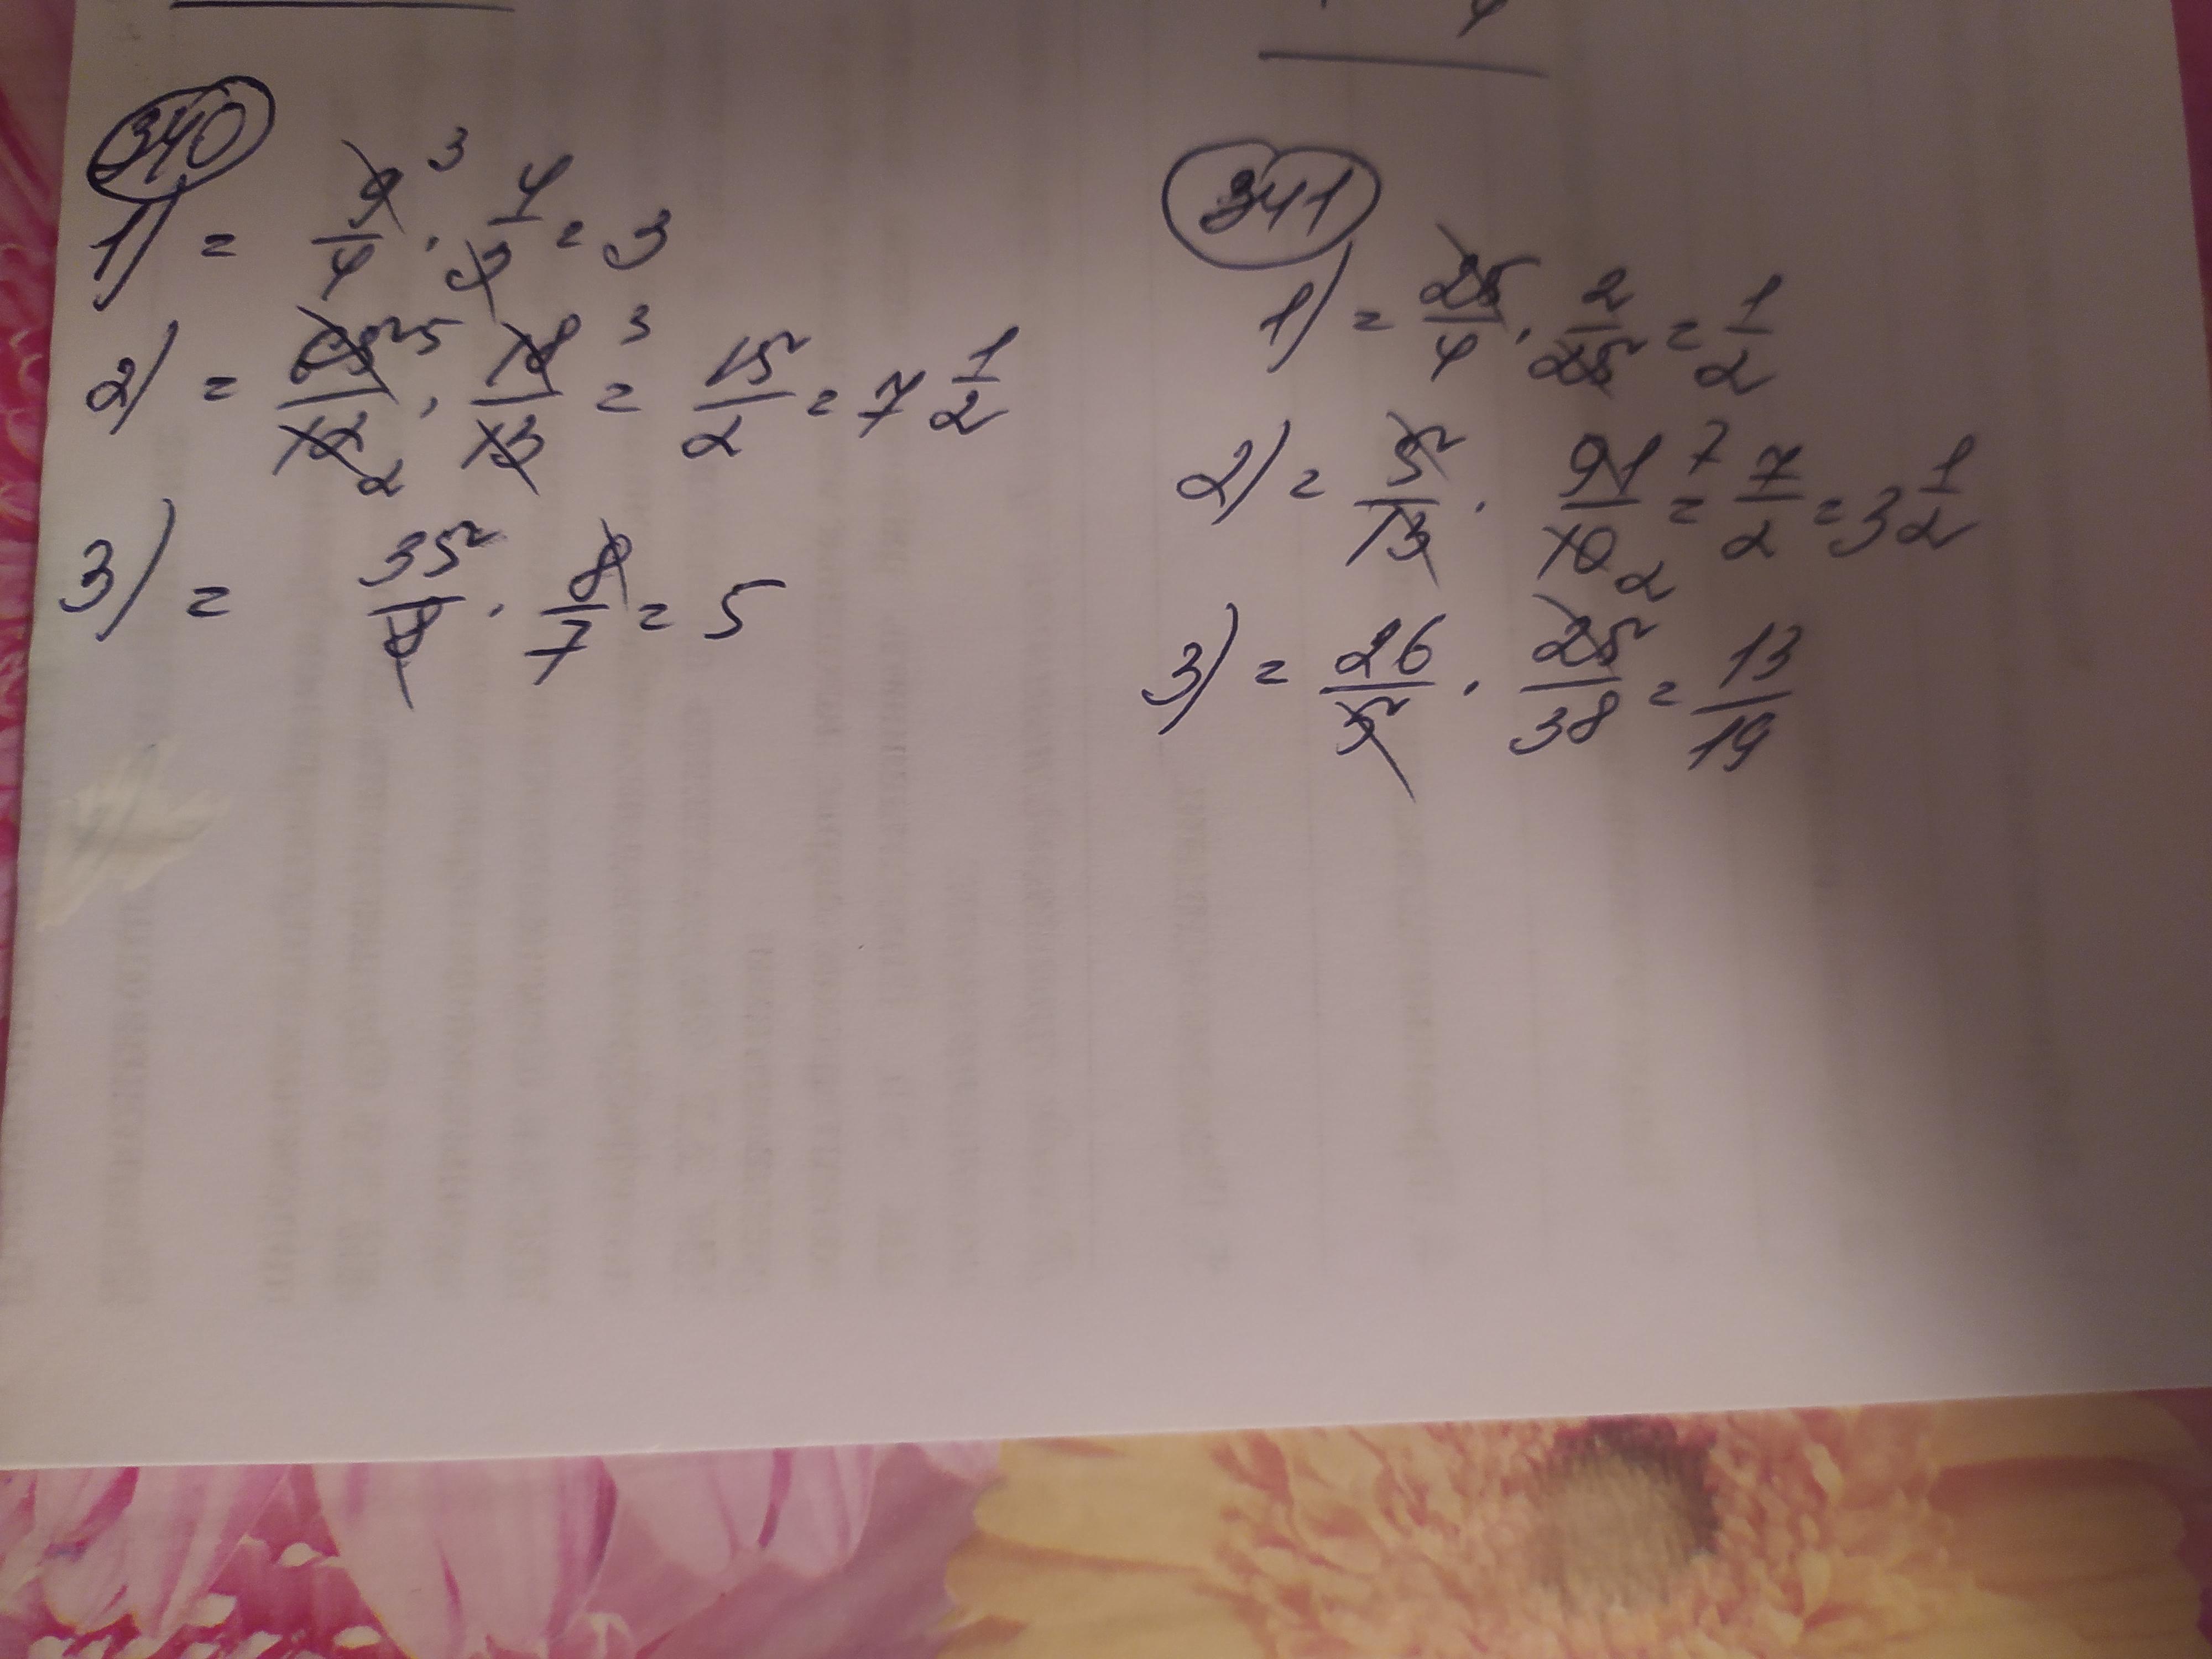 340
1) = 9/4 3 · 4/3 = 3
2) = 65/12 5 2 · 18/13 3 = 15/2 = 7 1/2
3) = 35/8 · 8/7 = 5
341
1) = 25/4 · 2/25 = 1/2
2) = 5/13 · 91/10 7 2 = 7/2 = 3 1/2
3) = 26/5 · 25/38 = 13/19